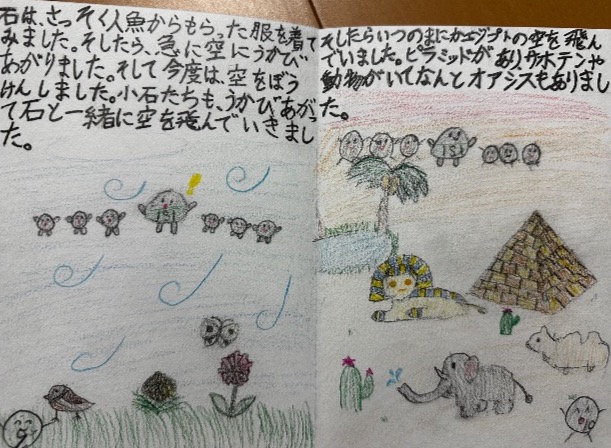 石は、さっそく人魚からもらった服を着て
みました。そしたら、急に空にうかび
あがりました。そして今度は、空をぼう
けんしました。小石たちも、うかびあがっ
て石と一緒に空を飛んでいきまし
た。
そしたらいつのまにかエジプトの空を飛ん
でいました。ピラミッドがあり、サボテンや
動物がいてなんとオアシスもありまし
た。